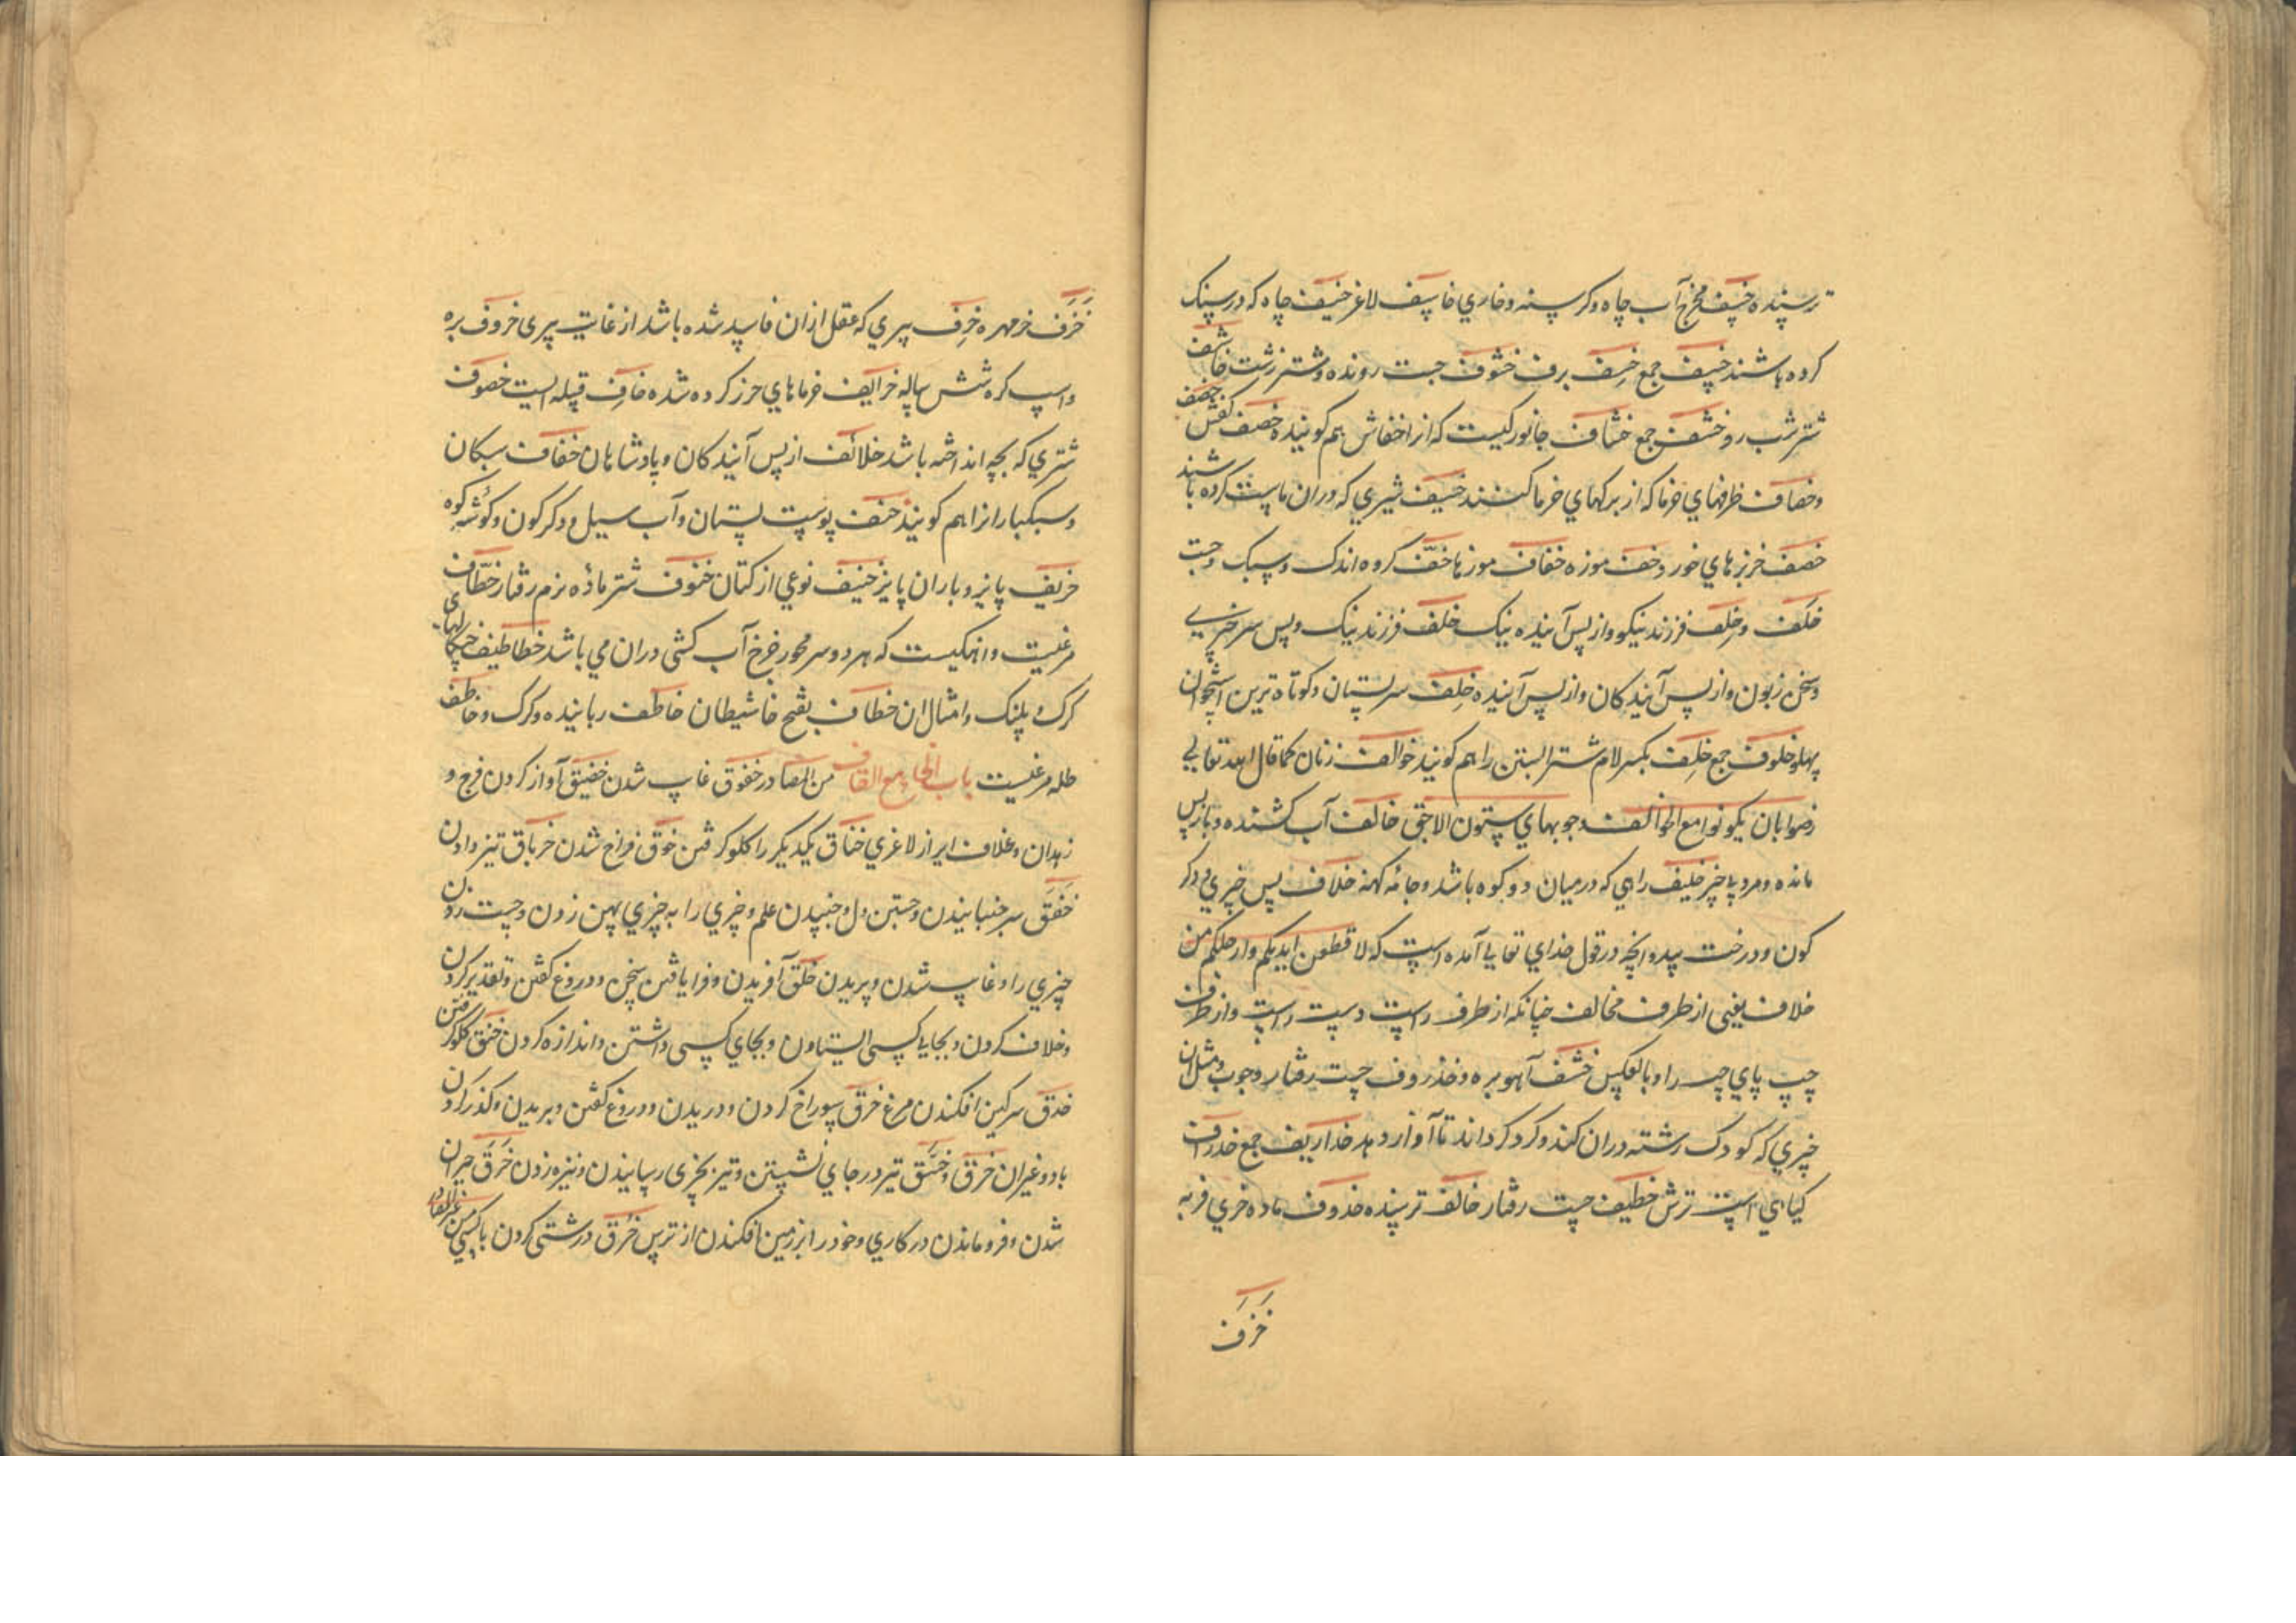 ترسنده خسیف مخرج آب چاه و کرسنه و خاری خاسف لاغر خسیف چاه که در سنک
کرده باشند خسیف جمع خسف برف خشوف جست رونده و شتر زشت خاشف
شتر شب رو خشف جمع خشاف جانورکیست که انرا خفاش هم کویند خصف کفش خصف
و خصاف ظرفهای خرما که از برکهای خرما کنند خصیف شیری که دران ماست کرده باشند
خصف خربزهای خورد خف موزه خفاف موزها خف کروه اندک و سبک و جست
خلف و خلف فرزند نیکو و از پس آینده نیک خلف فرزند نیک و پس سر خبری
و سخن زبون و از پس آیند کان و از پس آینده خلف سر پستان و کوتاه ترین استخوان
پهلو خلوف جمع خلف بکسر لام شتر آبستن را هم کویند خوالف زنان کما قال الله تعالی
رضوا بان یکونوا مع الخوالف و چوبهای ستون الاجق خالف آب کشنده و باز پس
مانده و مرد بی خیر خلیف راهی که در میان دو کوه باشد و جامه کهنه خلاف پس چیزی و دکر
کون و درخت بید و انچه در قول خدای تعالی آمده است که لا قطعن ایدیکم وارجلکم من
خلاف یعنی از طرف مخالف چنانکه از طرف راست دست راست و از طرف
چپ پای چپ را و بالعکس خشف آهو بره و خذروف جست رفتار و چوب و مثل آن
چیزی که کودک رشته دران کند و کرد کرداند تا آواز دهد خذاریف جمع خذراف
کیاهی است ترش خطیف جست رفتار خالف ترسنده خذوف ماده خری فربه
خزف
خزف خرمهره خرف پیری که عقل ازان فاسد شده باشد از غایت پیری خروف بره
و اسپ کره شش ساله خرایف خرماهای حرز کرده شده خارف قبیله ایست خصوف
شتری که بچه انداخته باشد خلائف از پس آیند کان و پادشاهان خفاف سبکان
و سبکبار انرا هم کویند خنف پوست پستان و آب سیل و دکر کون و کوشه کوه
خریف پاییز و باران پاییز خنیف نوعی از کتان خنوف شتر ماده نرم رفتار خطاف
مرغیست و انهکیست که هر دو سر محور چرخ آب کشی دران می باشد خطاطیف چنکالهای
کرک و پلنک و امثال ان خطاف بفتح خا شیطان خاطف رباینده و کرک و خاطف
ظله مرغیست باب الخاء مع القاف من المصادر خفوق غایب شدن خقیق آواز کردن فرج و
زهدان و غلاف ایر از لاغری خناق یکدیکر را کلو کرفتن خوق فراخ شدن خرباق تیز دادن
خفق سر جنبانیدن و جستن دل و جنبیدن علم و چیزی را به چیزی پهن زدن و جست زدن
چیزی را و غایب شدن و پریدن خلق آفریدن و فرا یافتن سخن و دروغ کفتن و تقدیر کردن
و خلاف کردن و بجای کسی ایستادن و بجای کسی داشتن و اندازه کردن خنق کلو کرفتن
خذق سرکین افکندن مرغ خرق سوراخ کردن و دریدن و دروغ کفتن و بریدن و کذر کردن
باد و غیران خزق و خسق تیر در جای نشستن و تیر بچیزی رسانیدن و نیزه زدن خرق حیران
شدن و فرو ماندن در کاری و خود را بر زمین افکندن از ترس خرق درشتی کردن با کسی من غیر المصادر